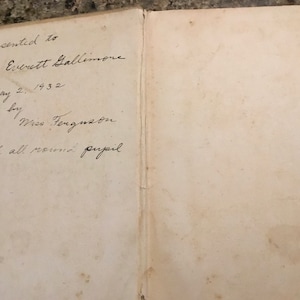 sented to
Everett Gallimore
ay 2 1932
by
Miss Ferguson
all round pupil